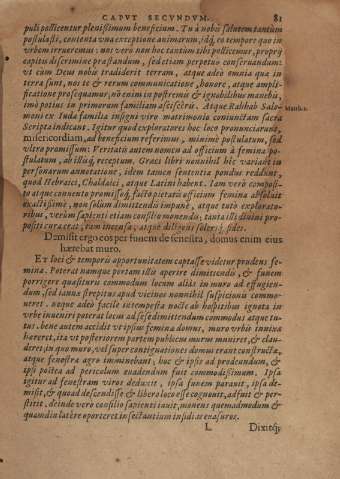 CAPVT SECVNDVM. 81
puli pollicentur plenissimum beneficium. Tu à nobis salutem tantùm
postulasti, contenta una exceptione animarum, idq́; eo tempore quo in
urbem irruerimus: nos verò non hoc tantùm tibi pollicemur, proprij
capitis discrimine præstandum, sed etiam perpetuò conseruandum:
ut cùm Deus nobis tradiderit terram, atque adeò omnia quæ in
terra sunt, nos te & rerum communicatione, honore, atque ampli-
ficatione prosequamur, nō eæ in postremis & ignobilibus manebis,
imò potius in primorum familiam ascisceris. Atque Rahab Salo-
Matth. 1.
moni ex Iuda familia insigni viro matrimonio coniunctam sacra
Scripta indicant. Igitur quod exploratores hoc loco pronunciarunt,
misericordiam, ad beneficium referimus, minimè postulatum, sed
ultro promissum: Veritatis autem nomen ad officium à fœmina po-
stulatum, ab illisq́; receptum. Græci libri nonnihil hîc variant in
personarum annotatione, idem tamen sententiæ pondus reddunt,
quod Hebraici, Chaldaici, atque Latini habent. Iam verò composi-
to atque conuento promissoq́;, facto pietatis officium femina absoluit
exactissimè, non solùm dimittendis impunè, atque tutò explorato-
ribus, verùm sapienti etiam consilio monendis: tanta illi diuini propo-
siti cura erat, tam incensa, atque diligens solersq́; fides.
Demisit ergo eos per funem de fenestra, domus enim eius
hærebat muro.
Et loci & temporis opportunitatem captasse videtur prudens fe-
mina. Poterat namque portam illis aperire dimittendis, & funem
porrigere quæsituris commodum locum aliàs in muro ad effugien-
dum, sed ianuæ strepitus apud vicinos nonnihil suspicionis commo-
ueret. neque adeò facile intempesta nocte ab hospitibus ignota in
urbe inueniri poterat locus ad sese dimittendum commodus atque tu-
tus. bene autem accidit ut ipsius femina domus, muro urbis innixa
hæreret, ita ut posteriorem partem publicum murus muniret, & clau-
deret, in quo muro, vel super contignationes domus erant constructæ,
atque fenestræ agro imminebant, hoc & ipsis ad prodeundum, &
ipsi postea ad periculum euadendum fuit commodissimum. Ipsa
igitur ad fenestram viros deduxit, ipsa funem parauit, ipsa de-
misit, & quoad descendisse & libero loco esse cognouit, adfuit & per-
stitit. deinde verò consilio sapienti iuuit, monens quemadmodum &
quamdiu latere oporteret insectantium insidias euasuros.
L Dixitq́;